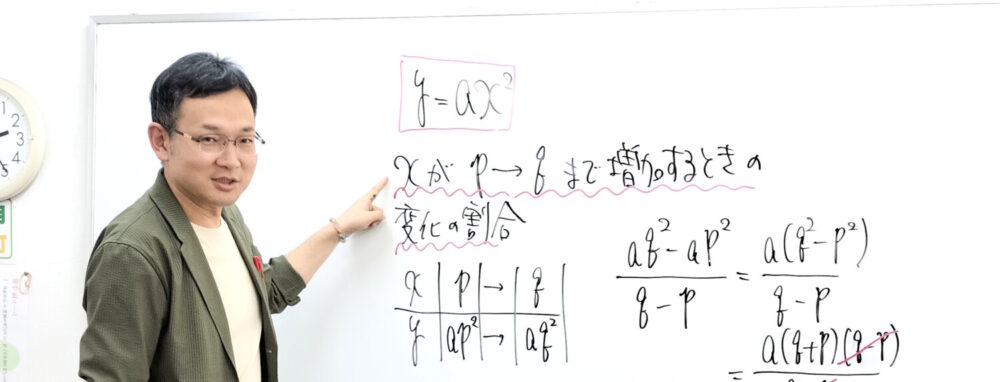 y = ax²
xが p → q まで増加するときの
変化の割合
x | p | → | q
y | ap² | → | aq²
(aq² - ap²)/(q - p) = a(q² - p²)/(q - p)
= a(q+p)(q-p)
1
2
3
4
5